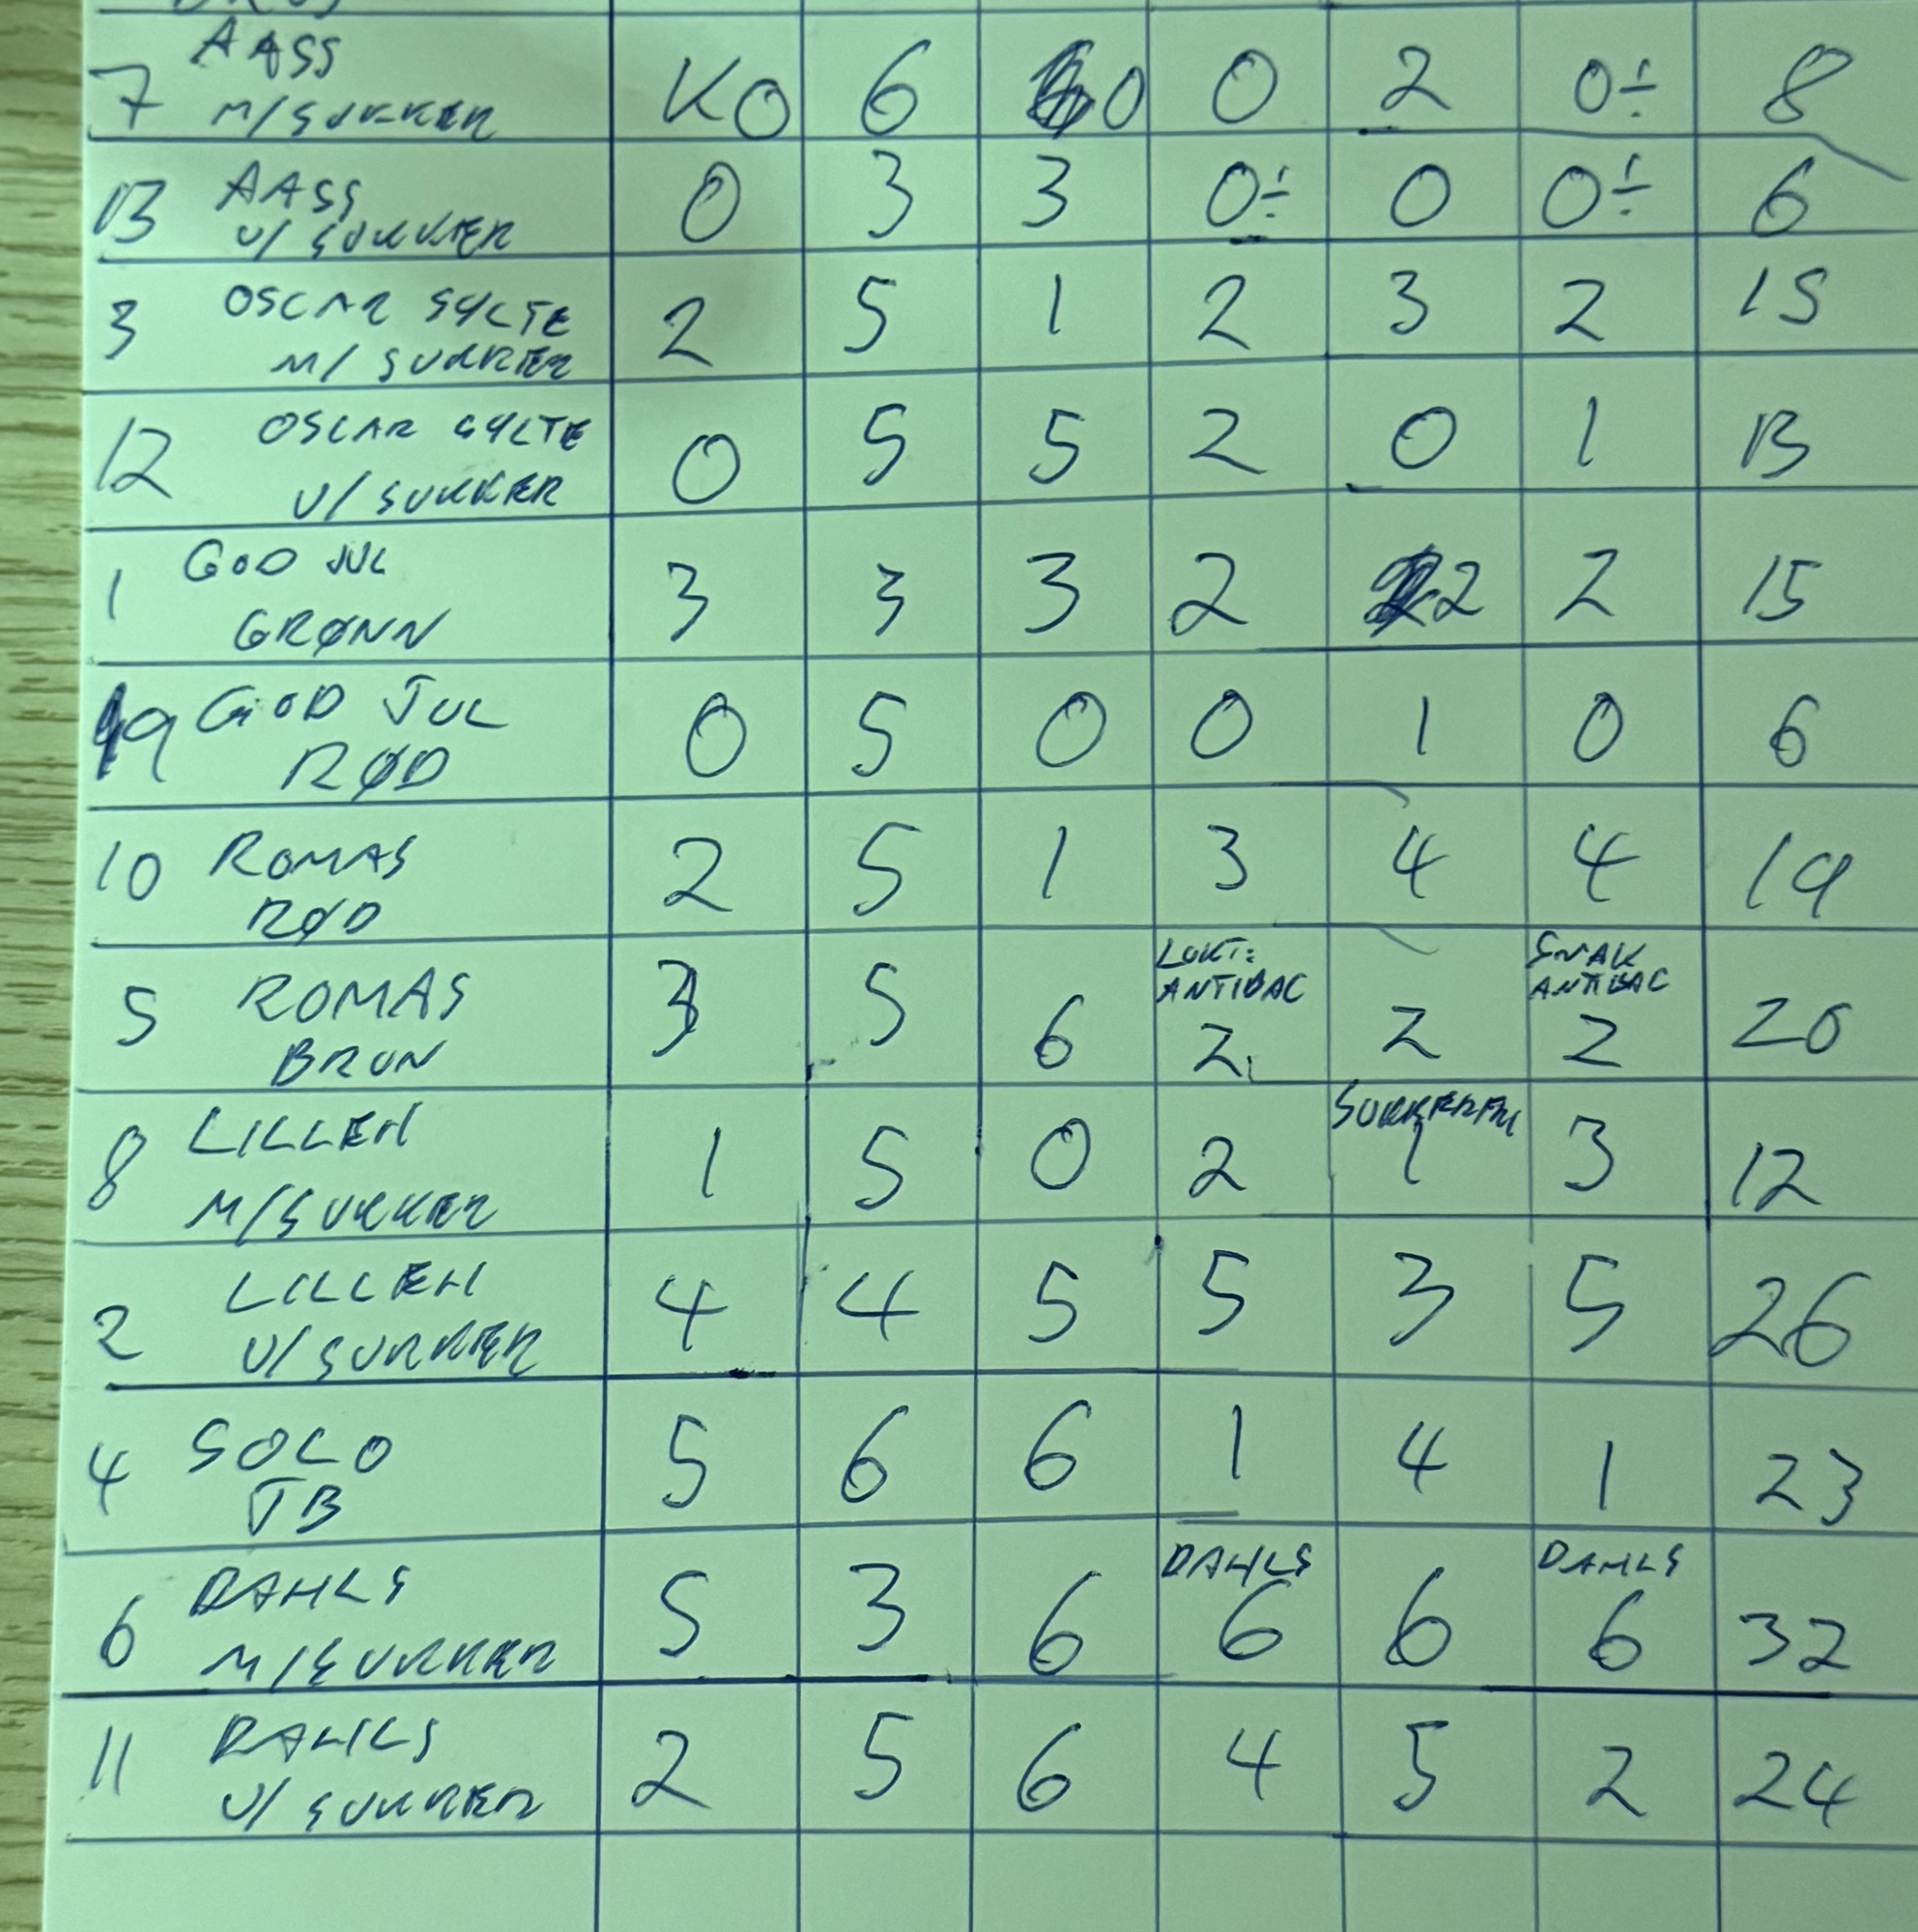 AASS
7 M/SUKKER KO 6 0 0 2 0÷ 8
13 AASS 0 3 3 0÷ 0 0÷ 6
U/SUKKER
3 OSCAR SYLTE 2 5 1 2 3 2 15
M/SUKKER
12 OSCAR SYLTE 0 5 5 2 0 1 13
U/SUKKER
1 GOD JUL 3 3 3 2 2 2 15
GRØNN
9 GOD JUL 0 5 0 0 1 0 6
RØD
10 ROMAS 2 5 1 3 4 4 19
RØD
LUKT: SMAK
ANTIBAC ANTIBAC
5 ROMAS 3 5 6 2 2 2 20
BRUN
SUKKERFRI
8 LILLEH 1 5 0 2 1 3 12
M/SUKKER
2 LILLEH 4 4 5 5 3 5 26
U/SUKKER
4 SOLO 5 6 6 1 4 1 23
JB
DAHLS DAHLS
6 DAHLS 5 3 6 6 6 6 32
M/SUKKER
11 DAHLS 2 5 6 4 5 2 24
U/SUKKER